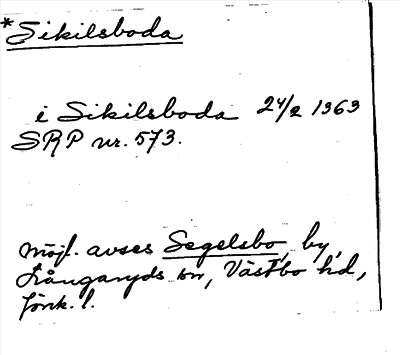 *Sikilsboda
i Sikilsboda 24/2 1363
SRP nr. 573.
möjl. avses Segelsbo, by,
Långaryds sn, Västbo hd,
Jönk. l.